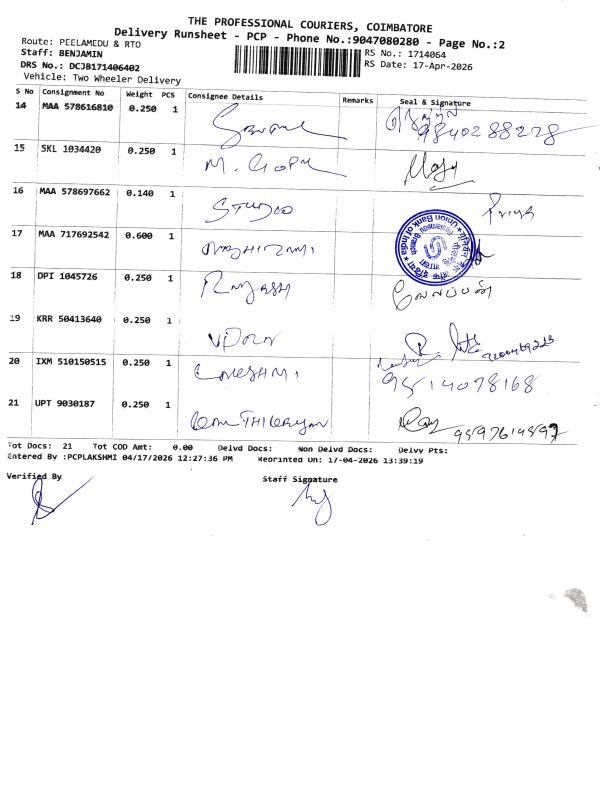 THE PROFESSIONAL COURIERS, COIMBATORE
Delivery Runsheet - PCP - Phone No.:9047080280 - Page No.:2
Route: PEELAMEDU & RTO
Staff: BENJAMIN
DRS No.: DCJB171406402
Vehicle: Two Wheeler Delivery
RS No.: 1714064
RS Date: 17-Apr-2026
S No Consignment No Weight PCS Consignee Details Remarks Seal & Signature
14 MAA 578616810 0.250 1 9840288228
15 SKL 1034420 0.250 1 M. GOPAL
16 MAA 578697662 0.140 1 STUDIO Priya
17 MAA 717692542 0.600 1
Union Bank of India
18 DPI 1045726 0.250 1 வேலப்பன்
19 KRR 50413640 0.250 1
20 IXM 510150515 0.250 1 9514078168
21 UPT 9030187 0.250 1
Tot Docs: 21 Tot COD Amt: 0.00 Delvd Docs: Non Delvd Docs: Delvy Pts:
Entered By :PCPLAKSHMI 04/17/2026 12:27:36 PM Reprinted On: 17-04-2026 13:39:19
Verified By
Staff Signature